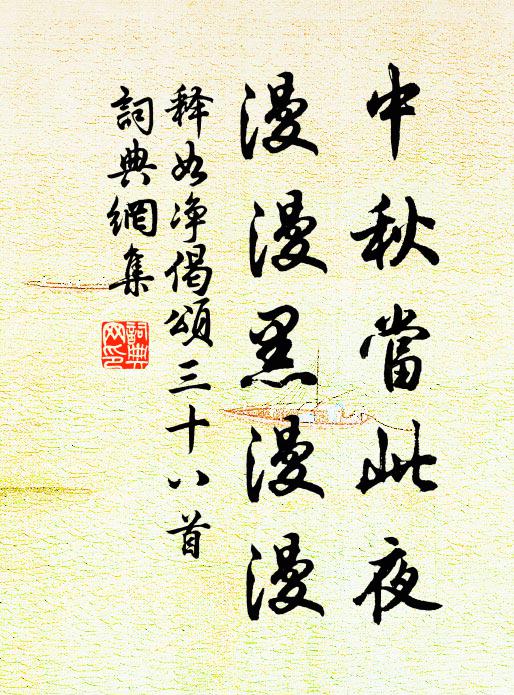 中秋當此夜
漫漫黑漫漫
释如净偈頌三十八首
詞典網集
詞典網印